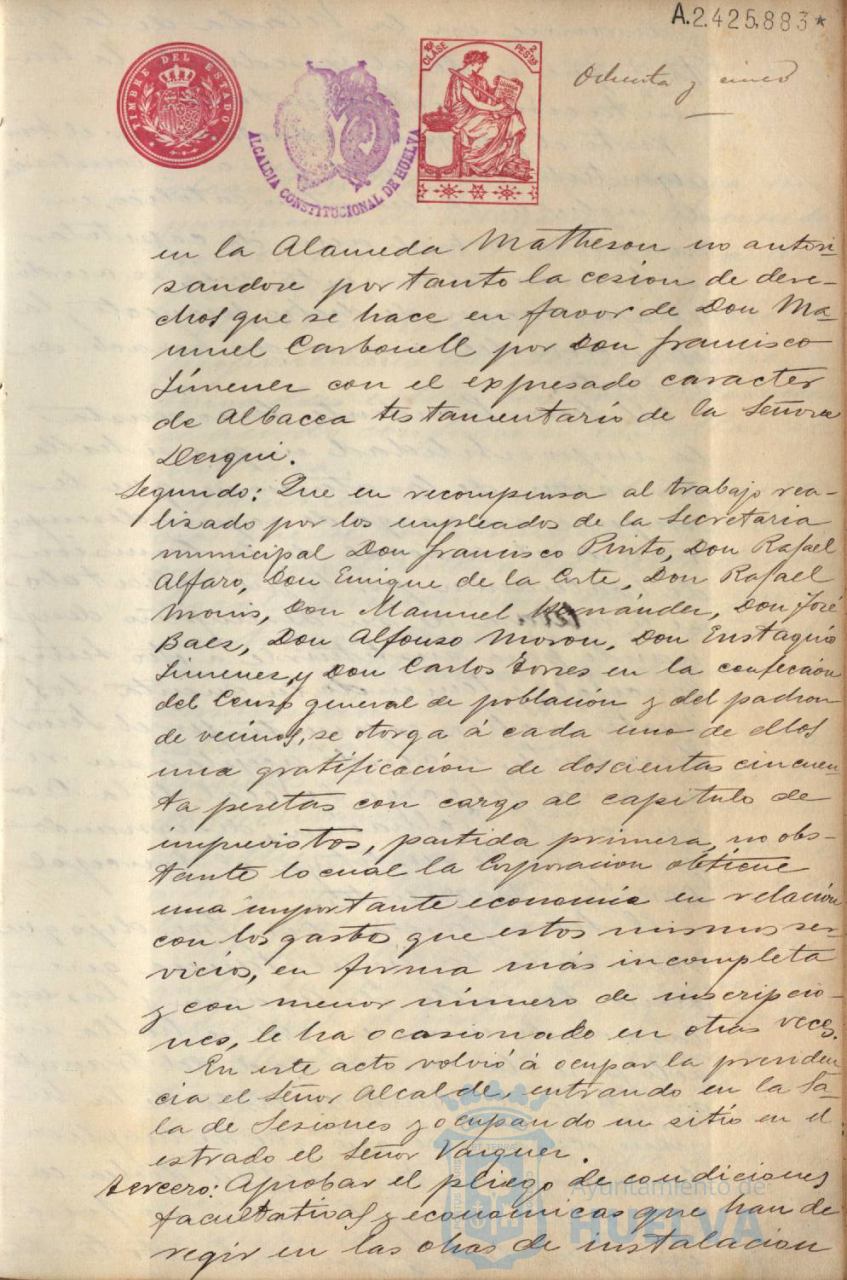 A.2.425,883*
TIMBRE DEL ESTADO
ALCALDIA CONSTITUCIONAL DE HUELVA
10ª CLASE 2 PESTAS
Ochenta y cinco
en la Alameda Matheson no autori-
sandose por tanto la cesion de dere-
chos que se hace en favor de Don Ma-
nuel Carbonell por Don francisco
Jimenez con el expresado caracter
de Albacea testamentario de la Señora
Derqui.
Segundo: Que en recompensa al trabajo rea-
lisado por los empleados de la Secretaria
municipal Don francisco Pinto, Don Rafael
Alfaro, Don Enrique de la Corte, Don Rafael
Monis, Don Manuel Hernández, Don José
Baez, Don Alfonso Moron, Don Eustaquio
Jimenez, y Don Carlos Torres en la confección
del Censo general de población y del padron
de vecinos, se otorga á cada uno de ellos
una gratificación de doscientas cincuen
ta pesetas con cargo al capitulo de
imprevistos, partida primera, no obs-
tante lo cual la Corporación obtiene
una importante economía en relación
con los gastos que estos mismos ser
vicios, en forma más incompleta
y con menor número de inscripcio-
nes, le ha ocasionado en otras veces.
En este acto volvió á ocupar la presiden
cia el Señor Alcalde, entrando en la Sa-
la de Sesiones y ocupando un sitio en el
estrado el Señor Vazquez.
tercero: Aprobar el pliego de condiciones
facultativas y económicas que han de
regir en las obras de instalación
Ayuntamiento de
HUELVA